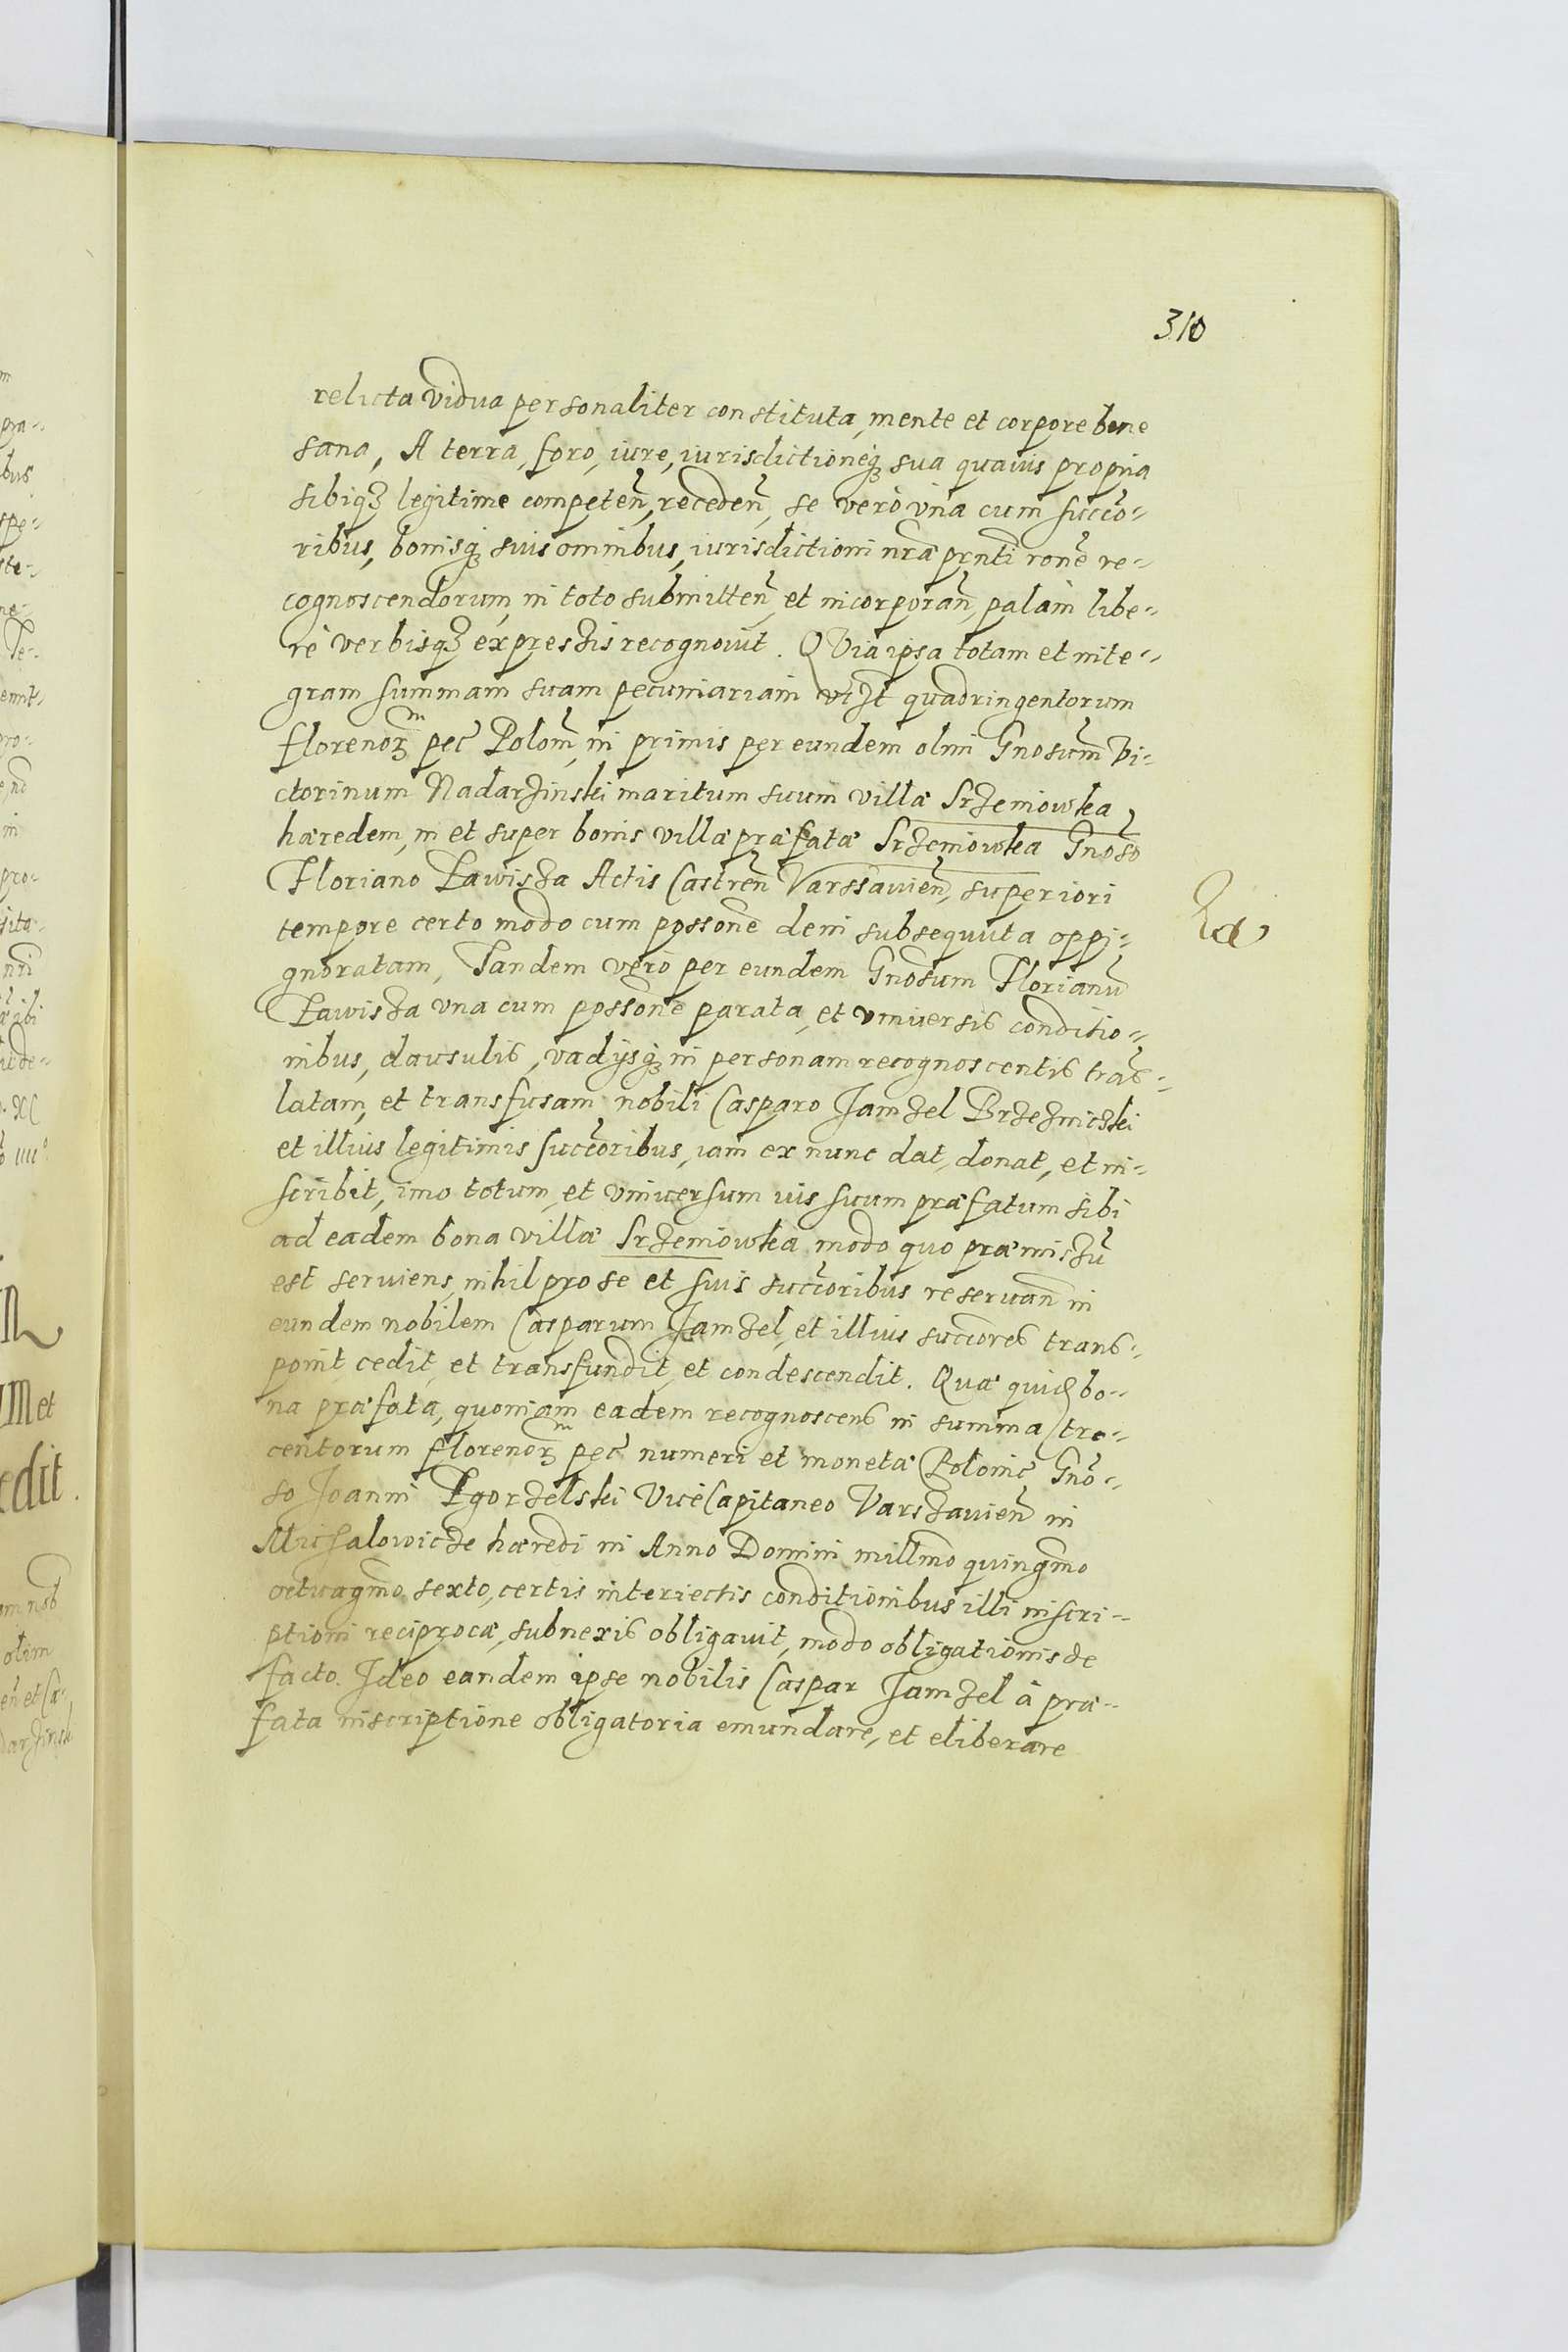 310
relicta vidua personaliter constituta, mente et corpore bene
sana, A terra, foro, iure, iurisdictioneq; sua quauis propria
sibiq; legitime competeñ, recedeñ, se verò vna cum succo-
ribus, bonisq; suis omnibus, iurisdictioni nrã prnti rone re-
cognoscendorum, in toto submitteñ, et incorporañ, palàm libe-
rè verbisq; expressis recognouit. QVia ipsa totam et inte-
gram summam suam pecuniariam vtst quadringentorum
florenorum pec Polom, in primis per eundem olim Gnosum Vi-
ctorinum Nadarzinski maritum suum villæ Srzeniowka
hæredem, in et super bonis villæ præfatæ Srzeniowka Gnoso
Floriano Lawisza Actis Castreñ Varssauieñ, superiori
tempore certo modo cum possone dein subsequuta oppi-
gnoratam, Tandem verò per eundem Gnosum Florianũ
Lawisza vna cum possone parata, et vniuersis conditio-
nibus, clausulis, vadijsq; in personam recognoscentis trãs-
latam, et transfusam nobili Casparo Jamzel Brzezniczki
et illius legitimis succoribus, iam ex nunc dat, donat, et in-
scribit, imo totum, et vniuersum ius suum præfatum sibi
ad eadem bona villæ Srzeniowka modo quo præmiszũ
est seruiens, nihil pro se et suis succoribus reseruañ in
eundem nobilem Casparum Jamzel, et illius succores trans-
ponit cedit, et transfundit, et condescendit. Quæ quid bo-
na præfata, quoniam eadem recognoscens in summa tre-
centorum florenorum pec numeri et monetæ Polonic Gno-
so Joanni Zgorzelski ViceCapitaneo Varszauieñ in
Michalowicze hæredi in Anno Domini millmo quingmo
octuagmo sexto, certis interiectis conditionibus illi inscri-
ptioni reciprocæ, subnexis obligauit, modo obligationis de
facto. Ideo eandem ipse nobilis Caspar Jamzel à præ-
fata inscriptione obligatoria emundare, et eliberare